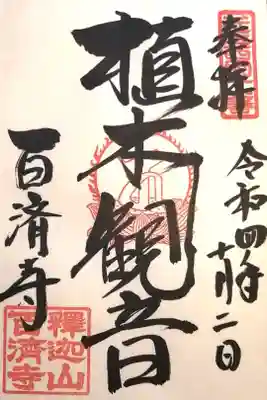 奉拝
令和四年十月二日
植木観音
百済寺
釋迦山
百済寺